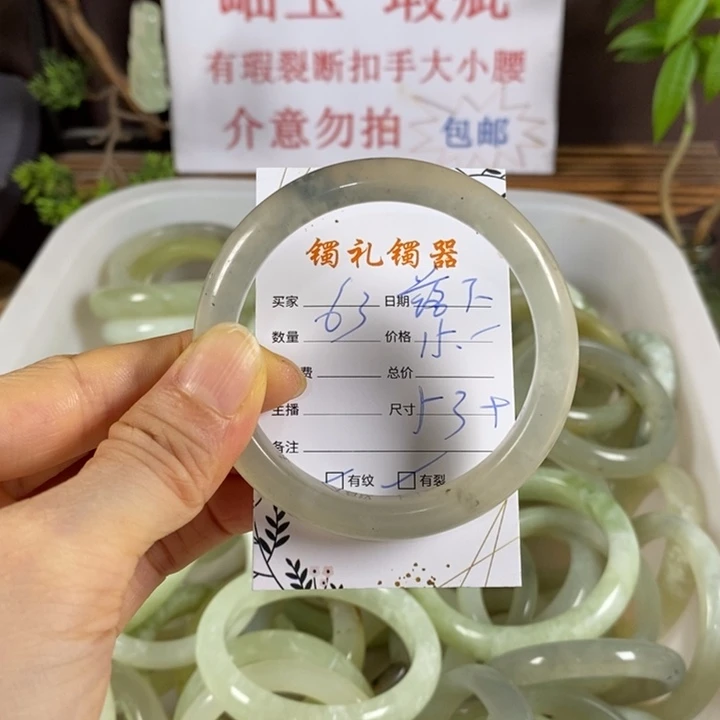 岫玉 瑕疵
有瑕裂断扣手大小腰
介意勿拍 包邮
镯礼镯器
买家 63 日期
数量 价格 15.-
费 总价
主播 尺寸 53+
备注
有纹 有裂